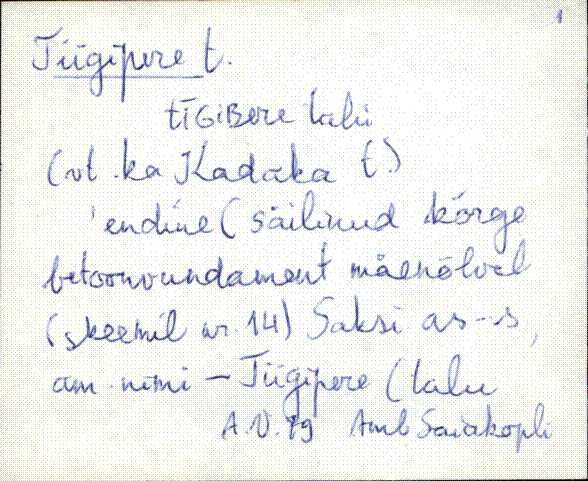 1
Tiigipere t.
tīGiBere talu
(vt. ka Kadaka t.)
'endine (säilinud kõrge
betoonvundament mäenõlval
(skeemil nr. 14) Saksi as-s,
am. nimi – Tiigipere (talu
A.V. 79 Amb Saiakopli